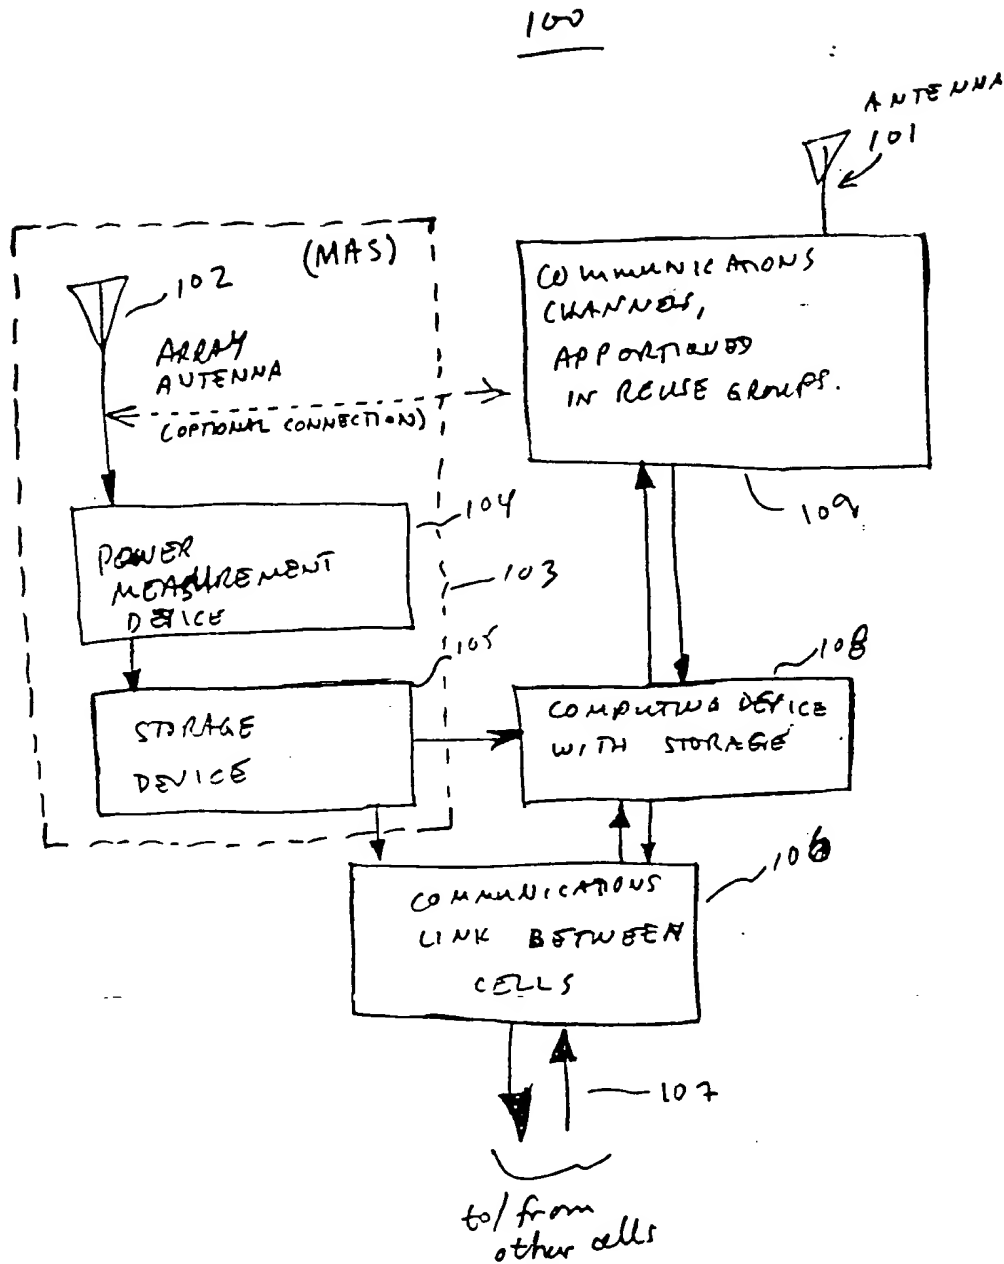 100
ANTENNA
101
(MAS)
102
ARRAY
ANTENNA
(OPTIONAL CONNECTION)
COMMUNICATIONS
CHANNELS,
APPORTIONED
IN REUSE GROUPS.
109
104
POWER
MEASUREMENT
DEVICE
103
105
STORAGE
DEVICE
108
COMPUTING DEVICE
WITH STORAGE
106
COMMUNICATIONS
LINK BETWEEN
CELLS
107
to/from
other cells